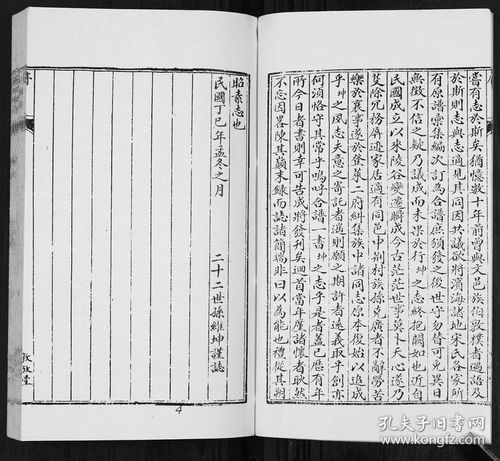 嘗有志於斯矣猶憶數十年前曾與文邑族伯執敦樸者過語及
於斯則志與志適見其同因共議欲將濱海諸地宋氏各家所
有原譜彙集編次訂為合譜庶頒發之後世守勿替可免異日
無徵不信之缺乃議成而未果於行坤之志終抱闕如也近自
民國成立以來陵谷變遷瞬成今古茫茫世事莫卜天心遂乃
芟除冗務屏迹家居適有同邑中荊村族孫克廣者不辭勞苦
樂於襄事遂於登萊二府糾集族中諸同志原本復始以追成
乎坤之夙志夫意之寄託者遠則願之期許者遠義取乎創亦
何須恪守其常乎嗚呼合譜一書坤之志乎是者蓋已歷有年
所今日者書則幸可告成將發刊矣迴首當年屢諸懷者耿然
不忘因畧陳其顛末錄而誌諸簡端非曰以為能也禮從其朔
昭素志也
民國丁巳年孟冬之月
二十二世孫維坤謹誌
敦敘堂
4
孔夫子旧书网
www.kongfz.com